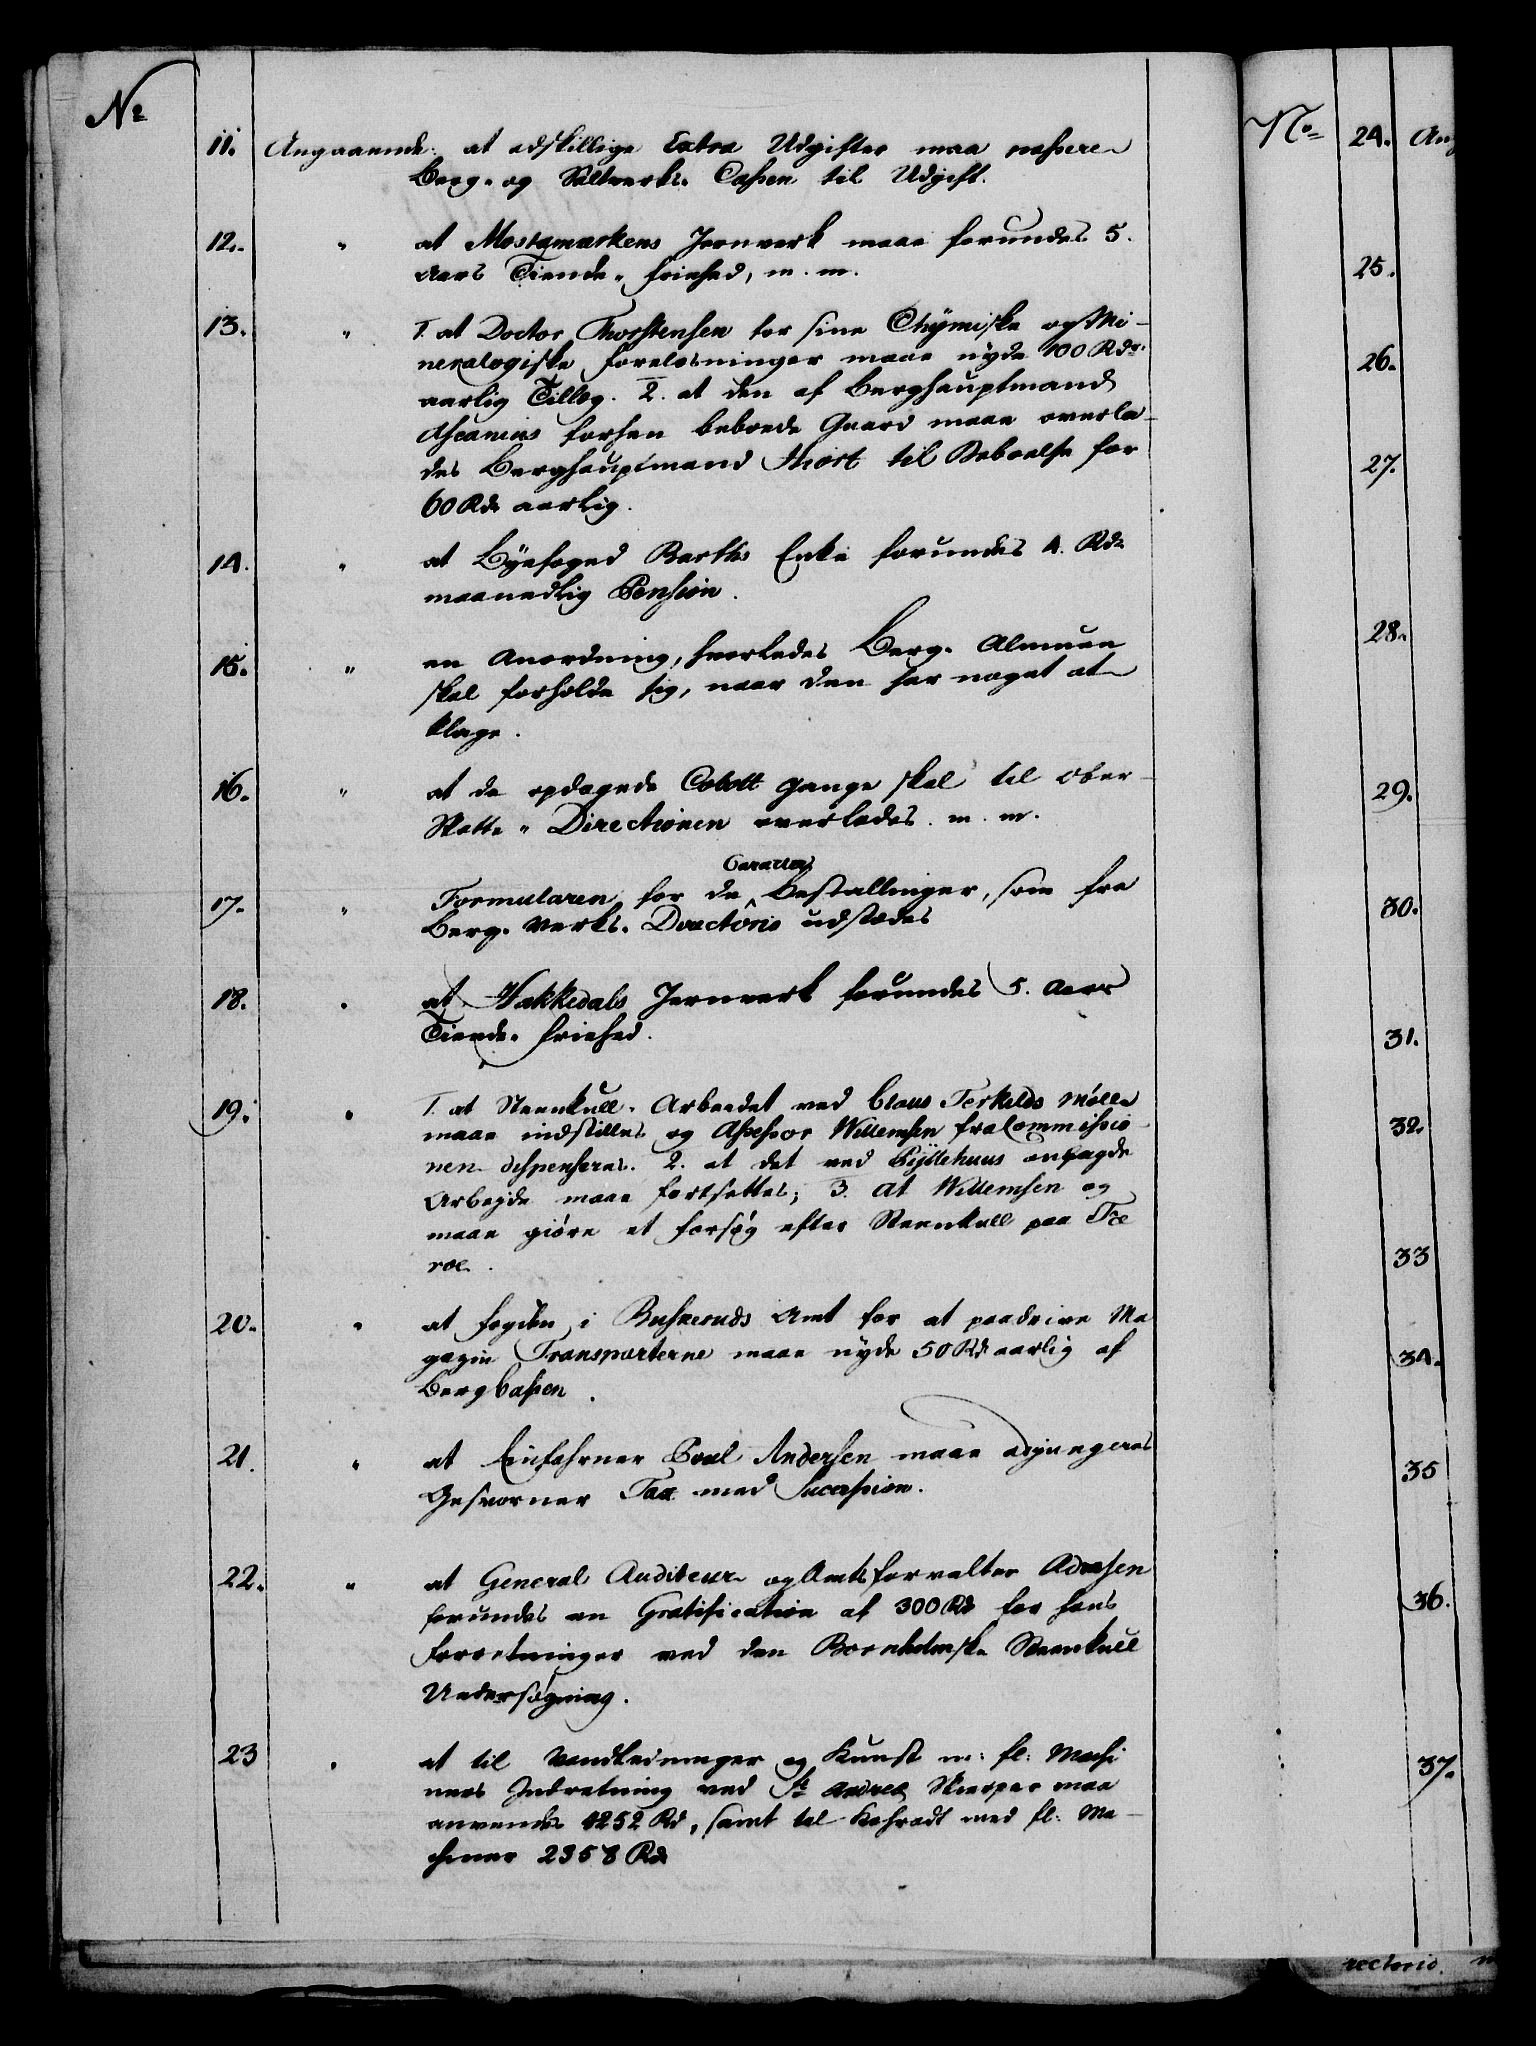 No
11. Angaaende. at adskillige Extra Udgifter maa passere
Berg- og Saltverks- Cassen til Udgift.
12. " at Mostamarkens Jernverk maae forundes 5.
Aars Tiende- friehed, m. m.
13. " 1. at Doctor Thorstensen for sine Chymiske og Mi-
neralogiske forelæsninger maae nyde 100 Rdr.
aarlig Tillæg. 2. at den af Berghauptmand
Ascanius forhen beboede Gaard maae overla-
des Berghauptmand Hiort til Beboelse for
60 Rdr aarlig.
14. " at Byefoged Barths Enke forundes 4. Rdr
maanedlig Pension.
15. " en Anordning, hvorledes Berg- Almuen
skal forholde sig, naar den har noget at
klage.
16. " at de opdagede Cobolt gange skal til Ober-
Skatte- Directionen overlades. m. m.
Caracter
17. " Formularen for de Bestallinger, som fra
Berg- Verks- Directorio udstædes
18. " at Hakkedals Jernverk forundes 5. Aars
Tiende- friehed.
19. " 1. at Steenkull- Arbeidet ved Claus Terkelds Mølle
maae indstilles og Assessor Willemsen fra Commissio-
nen dispenseres. 2. at det ved Pyttehuus anlagde
Arbejde maae fortsættes; 3. at Willemsen og
maae giøre et forsøg efter Steenkull paa Fæ
røe.
20. " at fogden i Buskeruds Amt for at paadrive Ma
gazin Transporterne maae nyde 50 Rdr aarlig af
Bergcassen.
21. " at Einfahrner Poul Andersen maae adjungeres
Gesvorner Fax med Succession.
22. " at General Auditeur og Amtsforvalter
forundes en Gratification af 300 Rdr for hans
forretninger ved den Bornholmske Steenkull
Undersøgning.
23 " at til Vandledninger og Kunst m: fl: Machi
ners Indretning ved St Andreas Skierper maa
anvendes 1252 Rd, samt til Kehrradt med fl: Ma-
chiner 2358 Rdr
No 24. Ang
25.
26.
27.
28.
29.
30.
31.
32.
33
34.
35
36.
37.
rectorio.